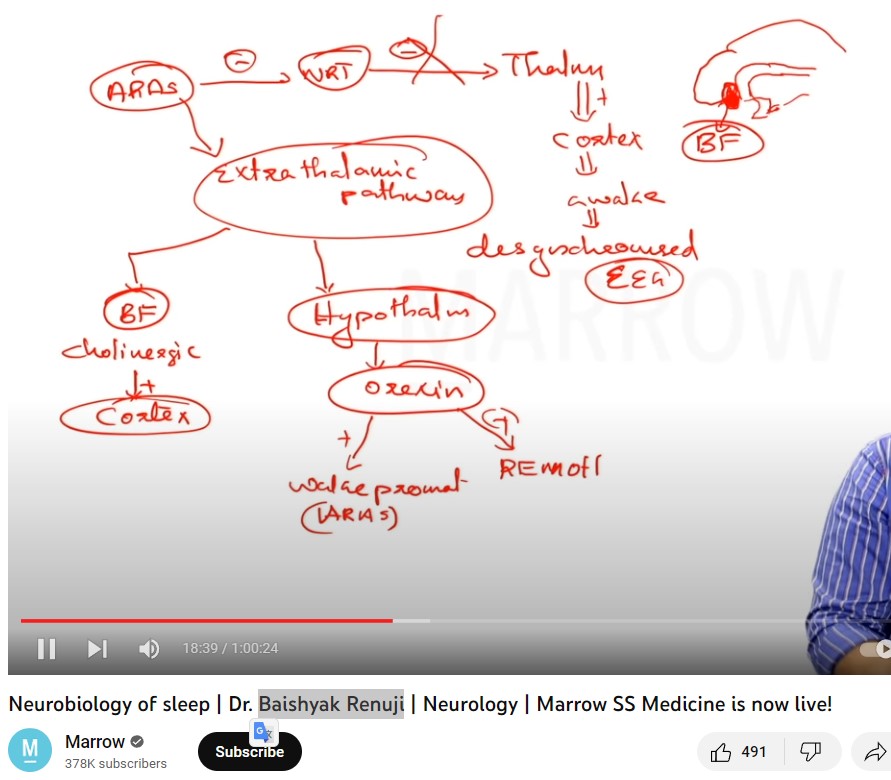 ARAS
−
NRT
−
Thalm
+
Cortex
awake
desynchronised
EEG
BF
Extrathalamic
pathway
BF
cholinergic
+
Cortex
Hypothalm
Orexin
+
wake promot
(ARAS)
+
REM off
MARROW
18:39 / 1:00:24
Neurobiology of sleep | Dr. Baishyak Renuji | Neurology | Marrow SS Medicine is now live!
M
Marrow
378K subscribers
Subscribe
491